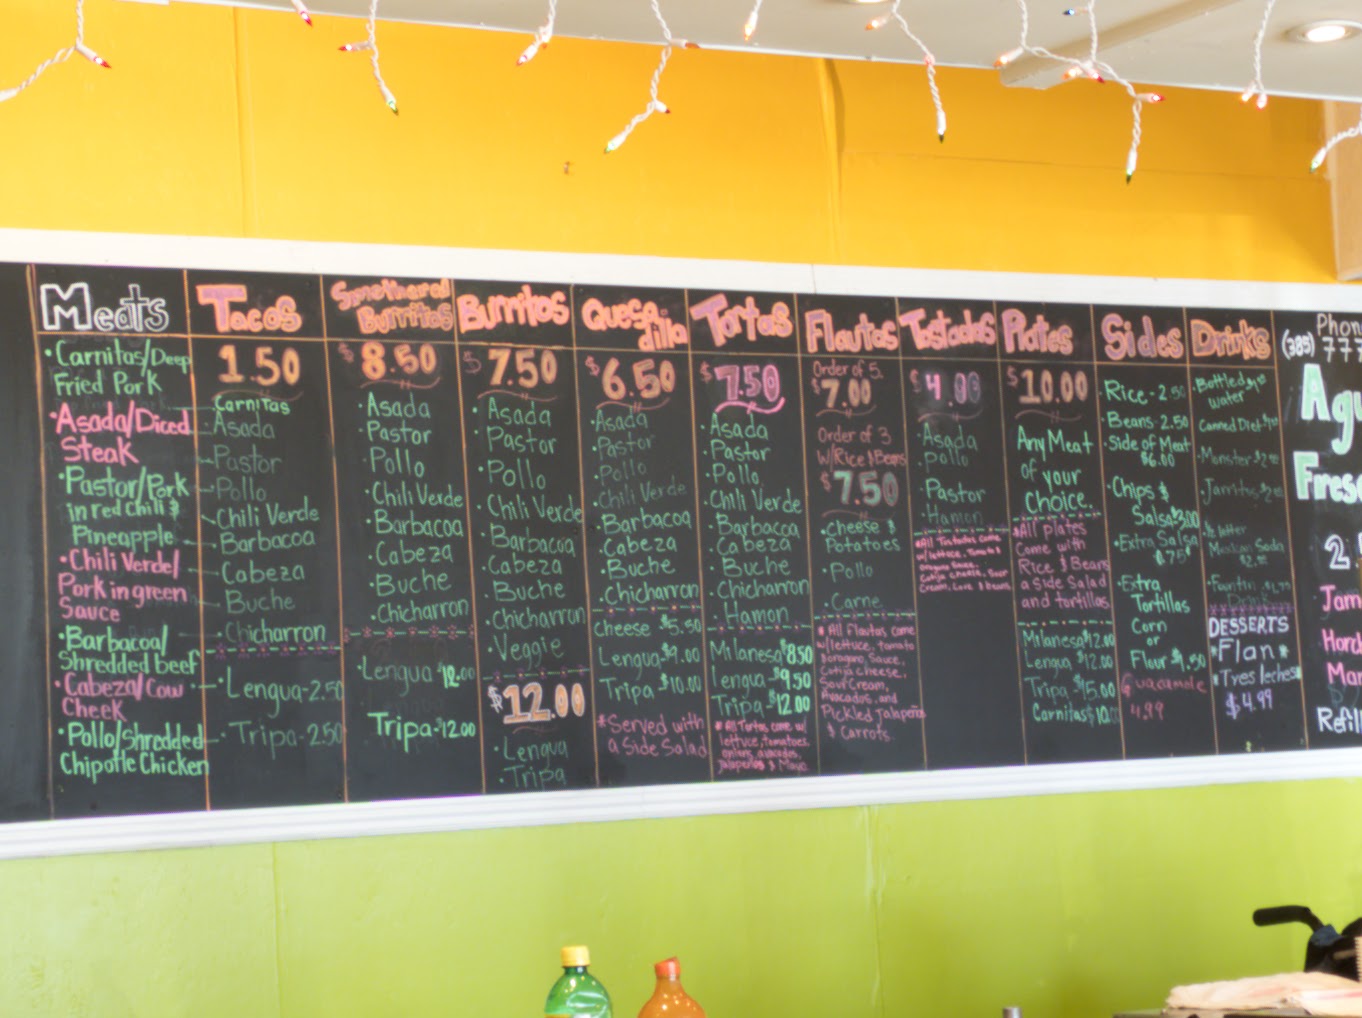 Meats
•Carnitas/Deep
Fried Pork
•Asada/Diced
Steak
•Pastor/Pork
in red chili &
Pineapple
•Chili Verde/
Pork in green
Sauce
•Barbacoa/
Shredded beef
•Cabeza/Cow
Cheek
•Pollo/Shredded
Chipotle Chicken
Tacos
1.50
Carnitas
Asada
Pastor
Pollo
Chili Verde
Barbacoa
Cabeza
Buche
Chicharron
•Lengua-2.50
•Tripa-2.50
Smothered
Burritos
$8.50
•Asada
•Pastor
•Pollo
•Chili Verde
•Barbacoa
•Cabeza
•Buche
•Chicharron
•Lengua 12.00
Tripa-$12.00
Burritos
$7.50
•Asada
•Pastor
•Pollo
•Chili Verde
•Barbacoa
•Cabeza
•Buche
•Chicharron
•Veggie
$12.00
•Lengua
•Tripa
Quesa
dilla
$6.50
•Asada
•Pastor
•Pollo
•Chili Verde
•Barbacoa
•Cabeza
•Buche
•Chicharron
Cheese $5.50
Lengua-$9.00
Tripa $10.00
*Served with
a Side Salad
Tortas
$7.50
•Asada
•Pastor
•Pollo
•Chili Verde
•Barbacca
•Cabeza
•Buche
•Chicharron
•Hamon
•Milanesa $8.50
Lengua-$9.50
Tripa $12.00
*All Tortas come w/
lettuce, tomatoes,
onions, avocados,
jalapeños & Mayo.
Flautas
Order of 5.
$7.00
Order of 3
W/Rice & Beans
$7.50
•Cheese &
Potatoes
•Pollo
•Carne
*All Flautas come
w/lettuce, tomato
Sauce,
Cotija cheese,
Sour Cream,
Avocados, and
Pickled Jalapeños
& Carrots.
Tostadas
$4.00
•Asada
•Pollo
•Pastor
•Hamon
*All Tostadas come
w/lettuce, Tomato
Sauce,
Cotija Cheese, Sour
Cream, & Beans
Plates
$10.00
Any Meat
of your
Choice
*All plates
Come with
Rice & Beans
a Side Salad
and tortillas.
Milanesa $12.00
Lengua $12.00
Tripa $15.00
Carnitas $10.
Sides
•Rice-2.50
•Beans-2.50
•Side of Meat
$6.00
•Chips &
Salsa $3.00
•Extra Salsa
0.75
•Extra
Tortillas
Corn
or
Flour $1.50
Guacamole
4.99
Drinks
•Bottled
water
Canned Diet
•Monster
•Jarritos
Mexican Soda
•Fountin
Drink
DESSERTS
*Flan*
*Tyes leches*
$4.99
Phon
(385) 777
Ag
Fres
2
Jam
Man
Refill